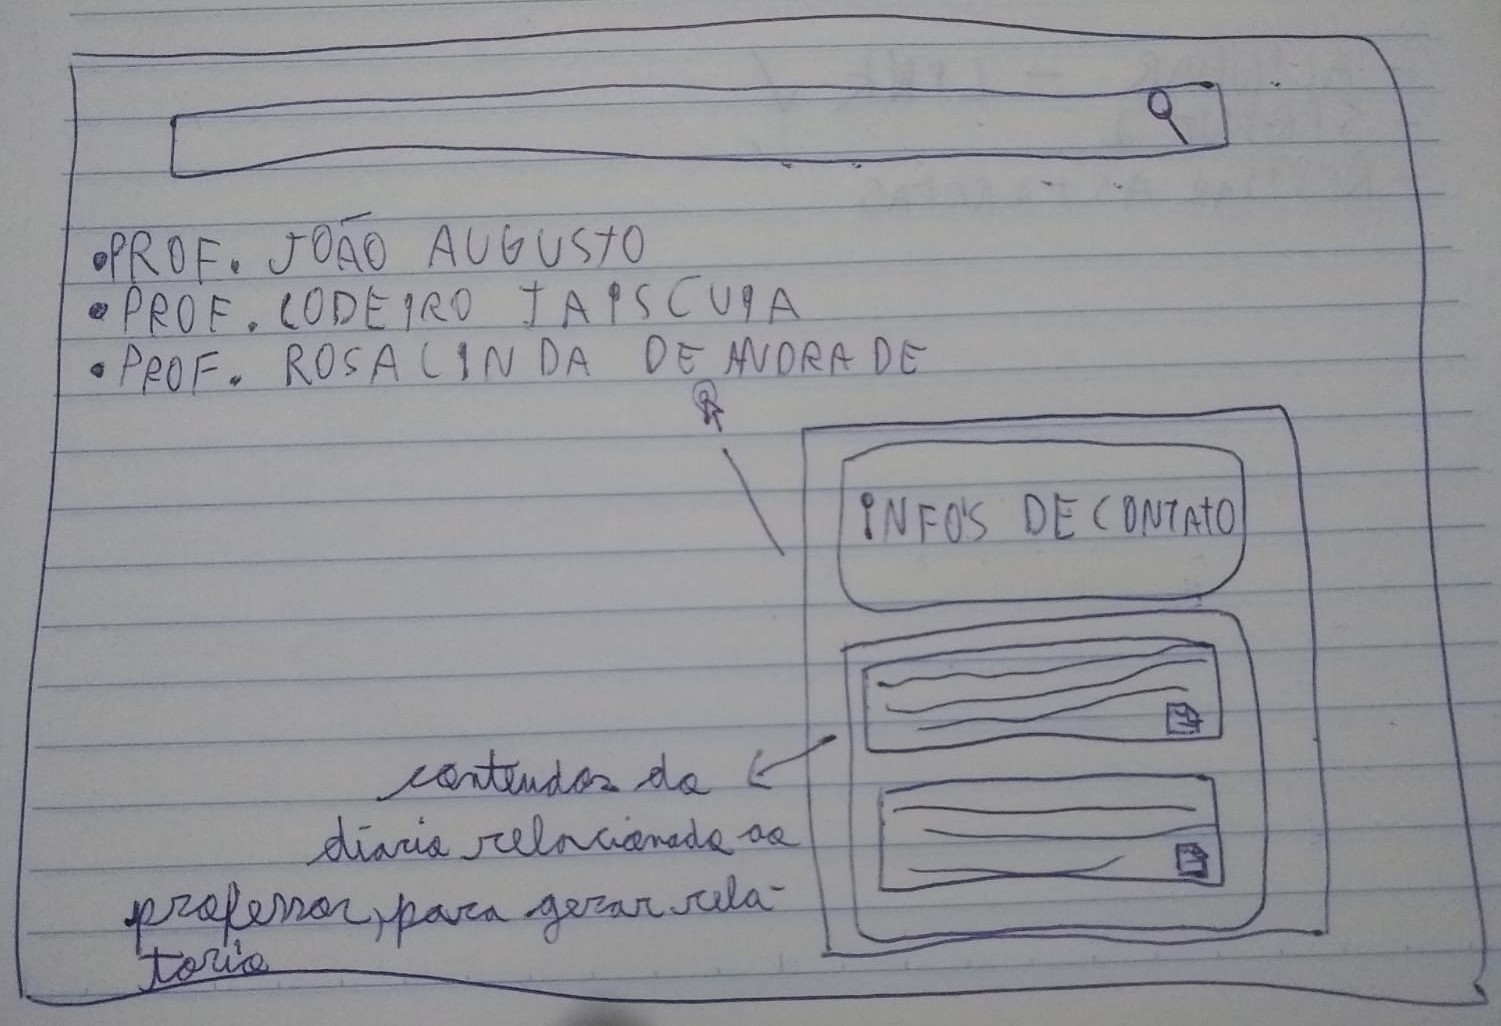 •PROF. JOÃO AUGUSTO
•PROF. LODEIRO JAISCUIA
•PROF. ROSALINDA DE ANDRADE
INFO'S DE CONTATO
conteudos do
diario relacionado ao
professor, para gerar rela-
torio